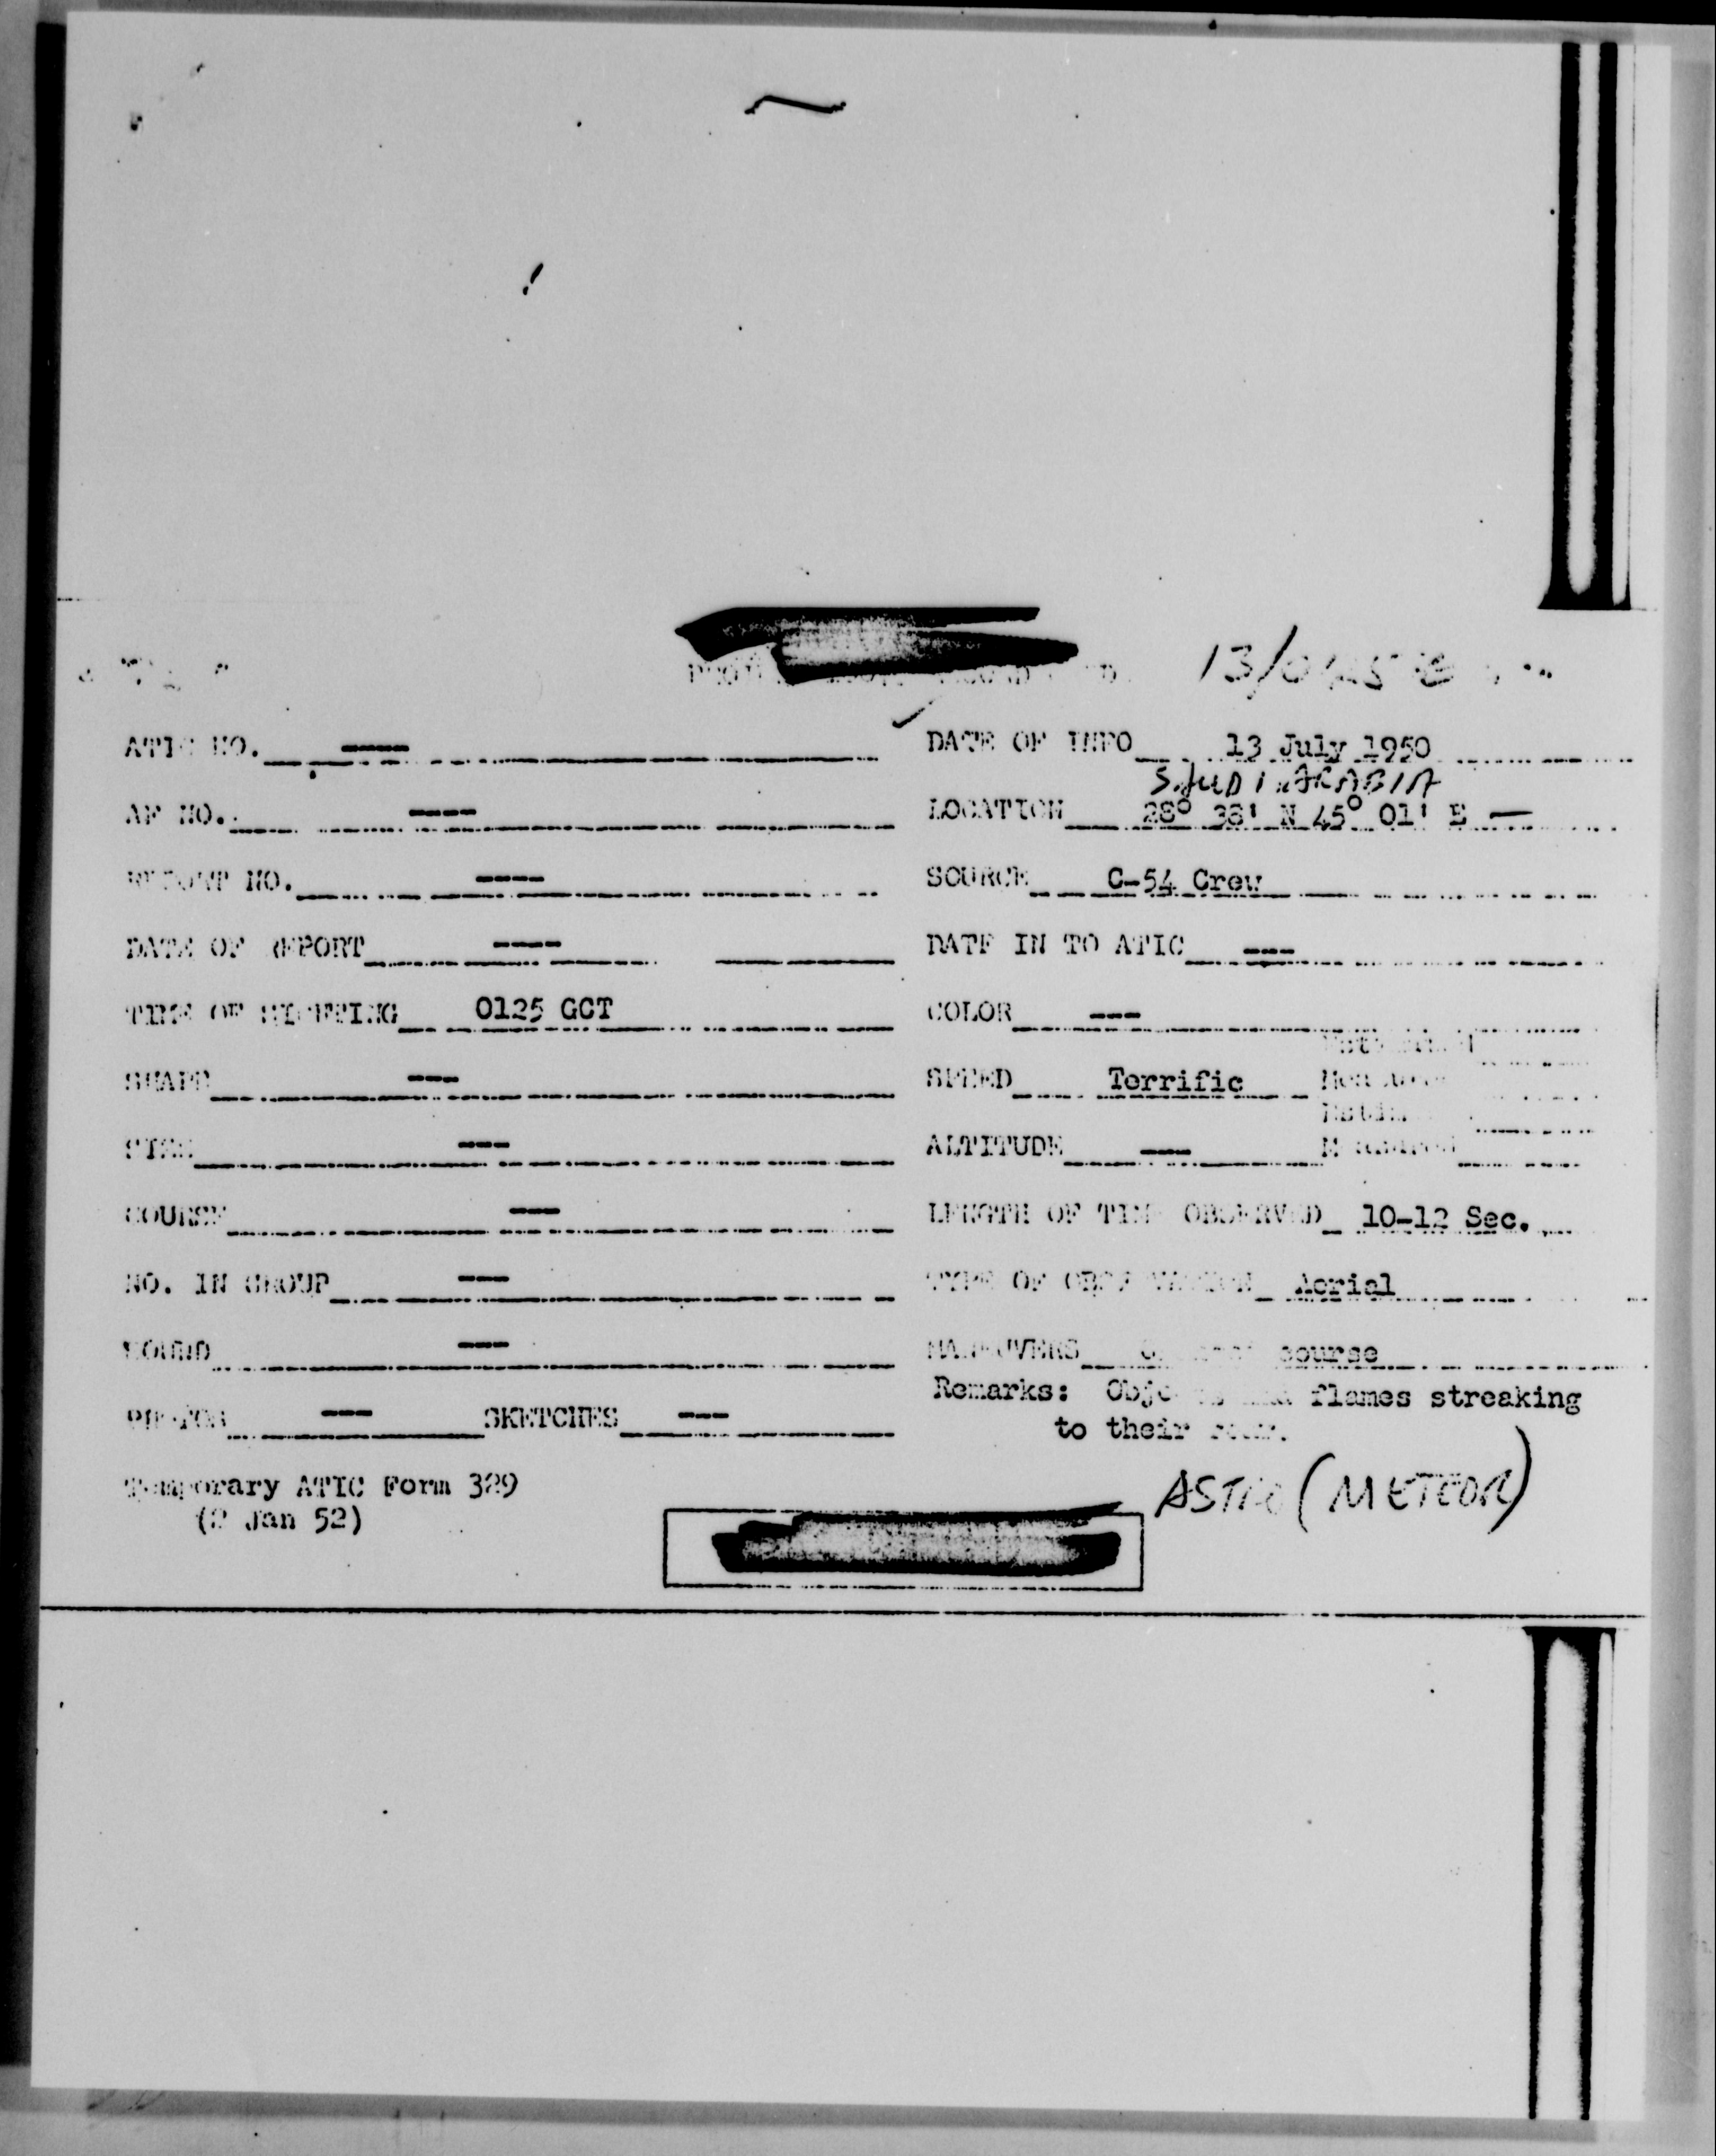 13/0125 Z
ATIC NO. ---- DATE OF INFO 13 July 1950
SAUDI ARABIA
AF NO. ---- LOCATION 28° 38' N 45° 01' E —
REPORT NO. ---- SOURCE C-54 Crew
DATE OF REPORT ---- DATE IN TO ATIC ---
TIME OF SIGHTING 0125 GCT COLOR ---
SHAPE --- SPEED Terrific
SIZE --- ALTITUDE ---
COURSE --- LENGTH OF TIME OBSERVED 10-12 Sec.
NO. IN GROUP --- TYPE OF OBSERVATION Aerial
SOUND --- MANEUVERS course
Remarks: flames streaking
PHOTOS --- SKETCHES ---
to their rear.
Temporary ATIC Form 329
(2 Jan 52)
ASTRO (METEOR)